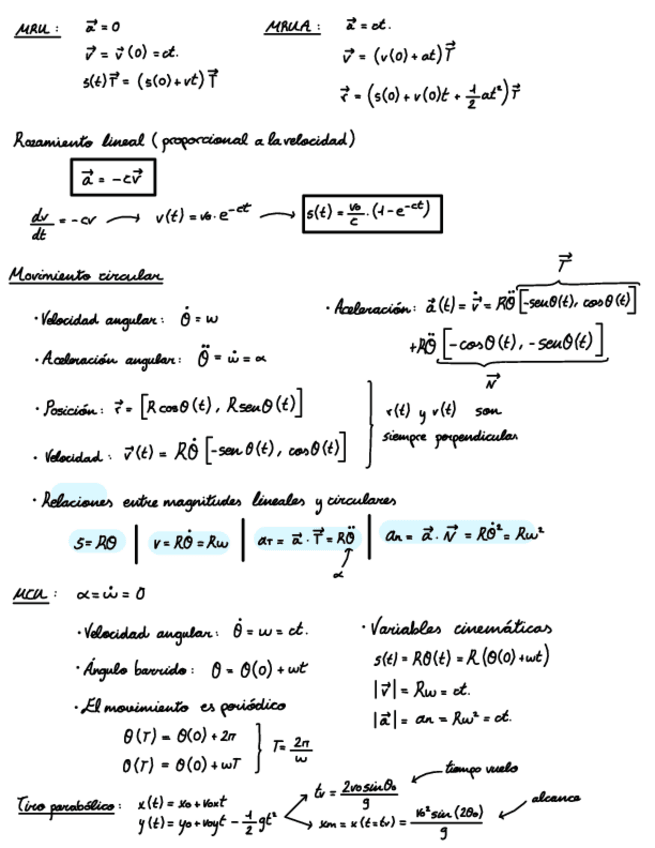 MRU: a⃗ = 0
v⃗ = v⃗(0) = ct.
s(t)T⃗ = (s(0) + vt)T⃗
MRUA: a⃗ = ct.
v⃗ = (v(0) + at)T⃗
r⃗ = (s(0) + v(0)t + 1/2 at²)T⃗
Rozamiento lineal (proporcional a la velocidad)
a⃗ = -cv⃗
dv/dt = -cv → v(t) = v₀ · e^(-ct) → s(t) = v₀/c · (1 - e^(-ct))
Movimiento circular
· Velocidad angular: θ̇ = w
· Aceleración angular: θ̈ = ẇ = α
· Posición: r⃗ = [R cosθ(t), R senθ(t)]
· Velocidad: v⃗(t) = Rθ̇ [-sen θ(t), cosθ(t)]
r(t) y v(t) son
siempre perpendicular
T⃗
· Aceleración: a⃗(t) = v⃗̇ = Rθ̈ [-senθ(t), cosθ(t)]
+Rθ̈ [-cosθ(t), -senθ(t)]
N⃗
· Relaciones entre magnitudes lineales y circulares
S = Rθ | v = Rθ̇ = Rw | aT = a⃗ · T⃗ = Rθ̈ | an = a⃗ · N⃗ = Rθ̇² = Rw²
α
MCU: α = ẇ = 0
· Velocidad angular: θ̇ = w = ct.
· Ángulo barrido: θ = θ(0) + wt
· El movimiento es periódico
θ(T) = θ(0) + 2π
θ(T) = θ(0) + wT
T = 2π/w
· Variables cinemáticas
s(t) = Rθ(t) = R(θ(0) + wt)
|v⃗| = Rw = ct.
|a⃗| = an = Rw² = ct.
Tiro parabólico: x(t) = x₀ + v₀ₓt
y(t) = y₀ + v₀yt - 1/2 gt²
tv = 2v₀sinθ₀/g ← tiempo vuelo
xm = x(t=tv) = v₀² sin(2θ₀)/g ← alcance